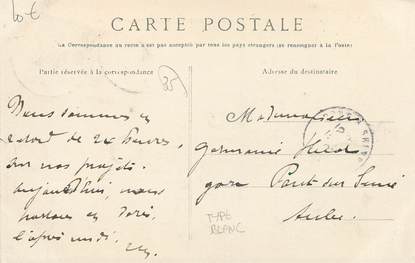 10 €
CARTE POSTALE
La Correspondance au recto n'est pas acceptée par tous les pays étrangers (Se renseigner à la Poste)
Partie réservée à la correspondance
Adresse du destinataire
35
Nous sommes en
retard de 24 heures,
sur nos projets.
aujourd'hui, nous
partons en
l'après midi.
Mademoiselle
Germaine
gare Pont sur Seine
Aube.
TYPE
BLANC